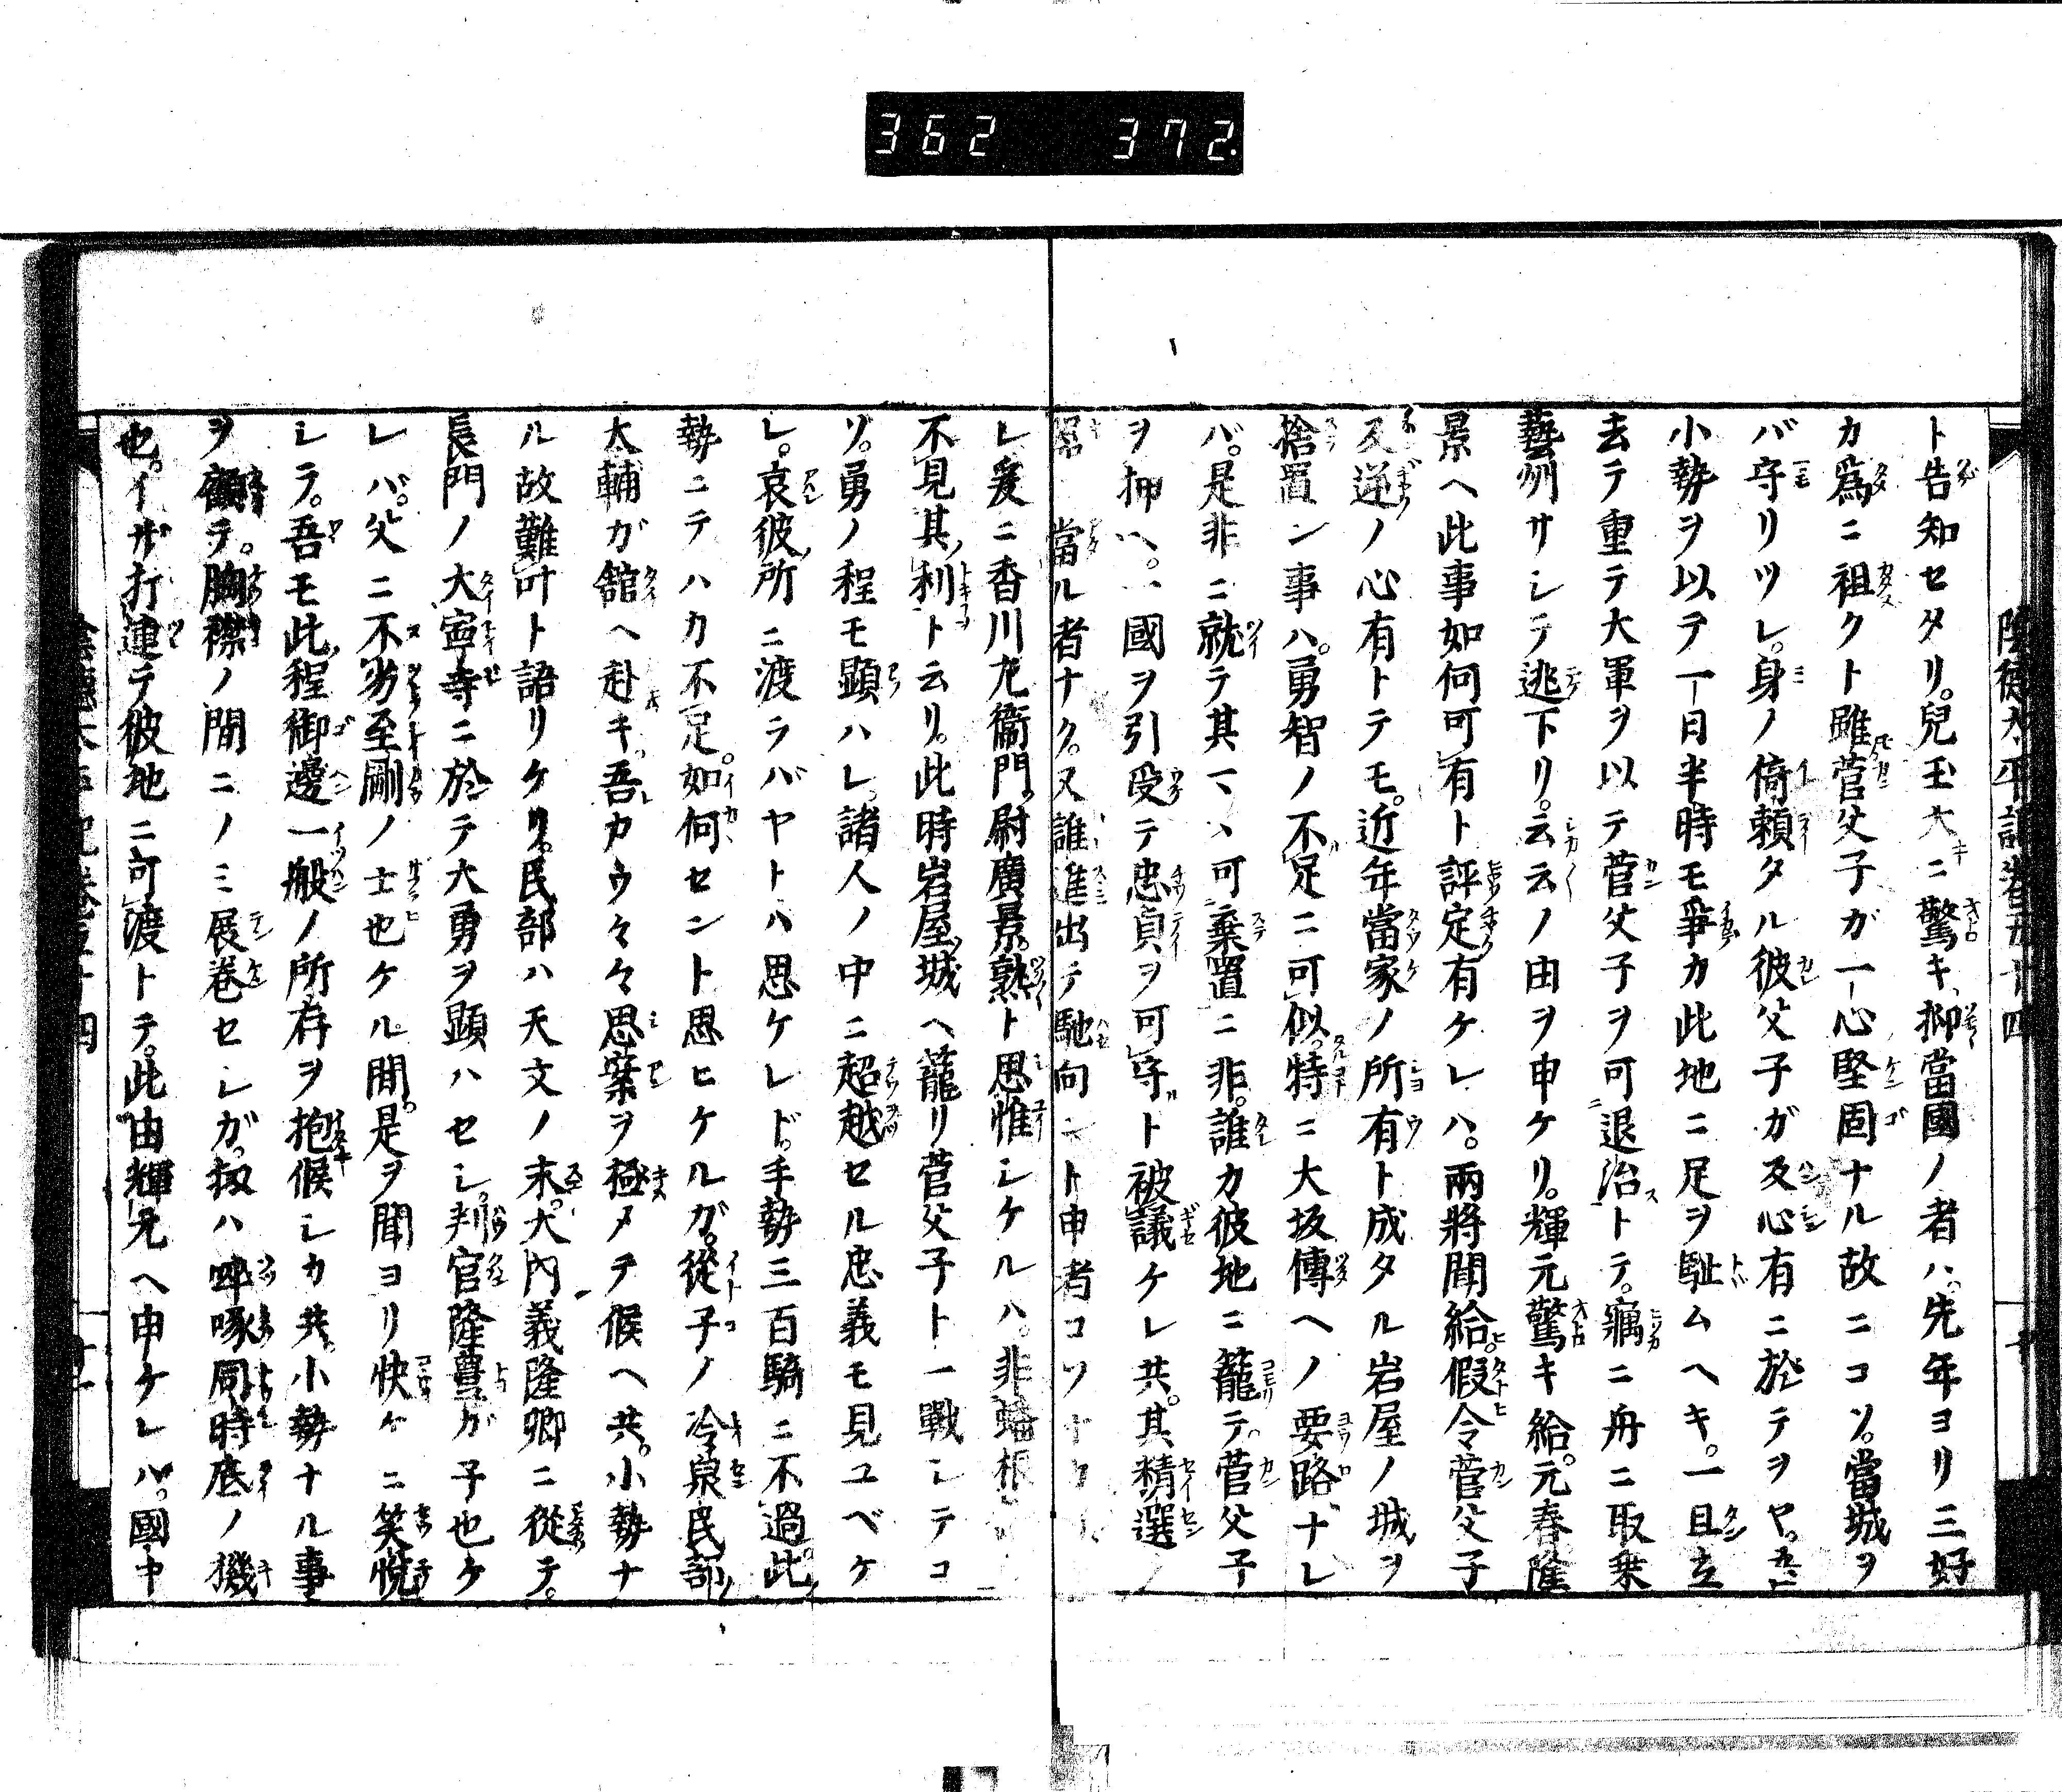 362 372.
陰徳太平記巻五十四
ト告知セタリ。兒玉大ニ驚キ、抑當國ノ者ハ。先年ヨリ三好
カ爲ニ祖クト雖菅父子ガ一心堅固ナル故ニコソ。當城ヲ
バ守リツレ。身ノ倚頼タル彼父子ガ及心有ニ於テヲヤ。
小勢ヲ以テ一日半時モ爭カ此地ニ足ヲ駐ムヘキ。一旦立
去テ重テ大軍ヲ以テ菅父子ヲ可退治トテ。竊ニ舟ニ取乗
藝州サシテ逃下リ。云云ノ由ヲ申ケリ。輝元驚キ給。元春隆
景ヘ此事如何可有ト評定有ケレハ。兩將聞給。假令菅父子
叉逆ノ心有トテモ。近年當家ノ所有ト成タル岩屋ノ城ヲ
捨置ン事ハ。勇智ノ不足ニ可似。特ニ大坂傳ヘノ要路ナレ
バ。是非ニ就テ其マヽ可棄置ニ非。誰カ彼地ニ籠テ。菅父子
ヲ押ヘ。一國ヲ引受テ忠貞ヲ可守ト被議ケレ共。其精選ノ
當ル者ナク。又誰進出テ馳向ント申者コソナカ
レ爰ニ香川左衞門尉廣景。熟ト思惟シケルハ。非蟠根
不見其利ト云リ。此時岩屋城ヘ籠リ菅父子ト一戰シテコ
ソ。勇ノ程モ顯ハレ。諸人ノ中ニ超越セル忠義モ見ユベケ
レ。哀彼所ニ渡ラバヤトハ思ケレド。手勢三百騎ニ不過此
勢ニテハカ不足。如何セント思ヒケルガ。從子ノ冷泉民部
大輔ガ舘ヘ赴キ。吾カウ々々思案ヲ極メテ候ヘ共。小勢ナ
ル故難叶ト語リケリ。民部ハ天文ノ末。大内義隆卿ニ從テ。
長門ノ大寧寺ニ於テ大勇ヲ顯ハセシ。判官隆豊ガ子也ケ
レバ。父ニ不劣至剛ノ士也ケル間。是ヲ聞ヨリ快ケニ笑悦
シテ。吾モ此程御邊一般ノ所存ヲ抱候シカ共。小勢ナル事
ヲ顧テ。胸襟ノ間ニノミ展巻セシガ。扨ハ啐啄同時底ノ機
也。イザ打連テ彼地ニ可渡トテ。此由輝元ヘ申ケレハ。國中
陰徳太平記巻五十四